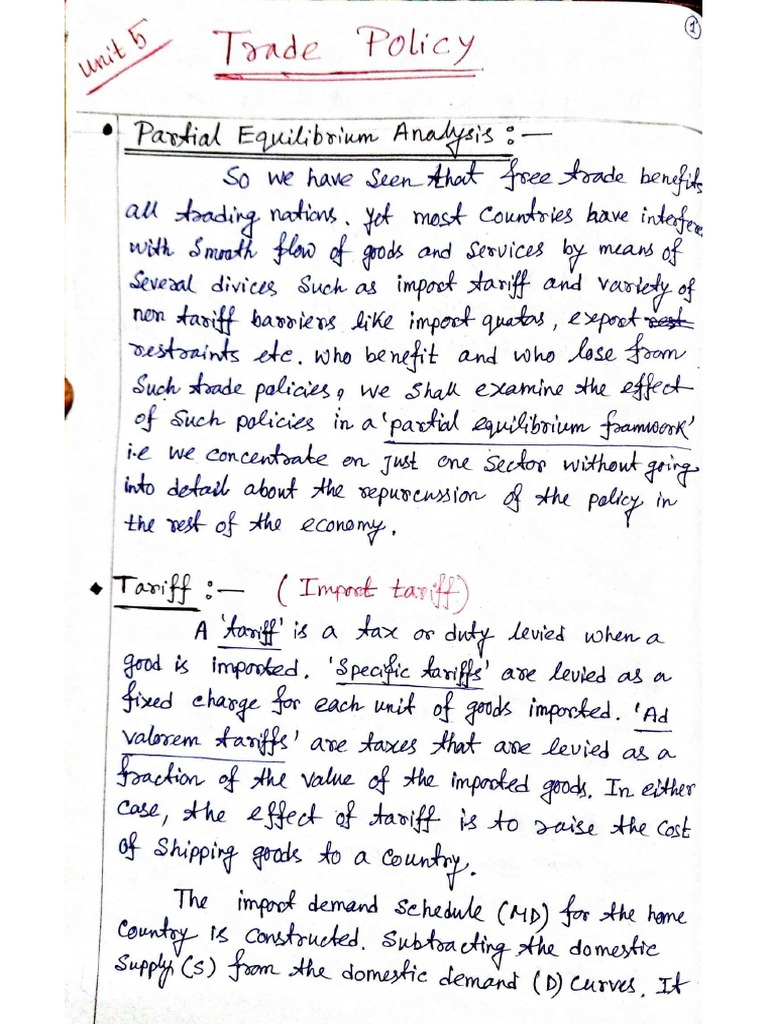 1
Unit 5
Trade Policy
• Partial Equilibrium Analysis :—
So we have seen that free trade benefits
all trading nations. Yet most countries have interfere
with smooth flow of goods and services by means of
several divices such as import tariff and variety of
non tariff barriers like import quatas, export rest
restraints etc. who benefit and who lose from
such trade policies, we shall examine the effect
of such policies in a 'partial equilibrium framwork'
i.e we concentrate on just one sector without going
into detail about the repurcussion of the policy in
the rest of the economy.
◆ Tariff :— (Import tariff)
A 'tariff' is a tax or duty levied when a
good is imported. 'Specific tariffs' are levied as a
fixed charge for each unit of goods imported. 'Ad
valorem tariffs' are taxes that are levied as a
fraction of the value of the imported goods. In either
case, the effect of tariff is to raise the cost
of shipping goods to a country.
The import demand schedule (MD) for the home
country is constructed. Subtracting the domestic
supply (S) from the domestic demand (D) curves. It